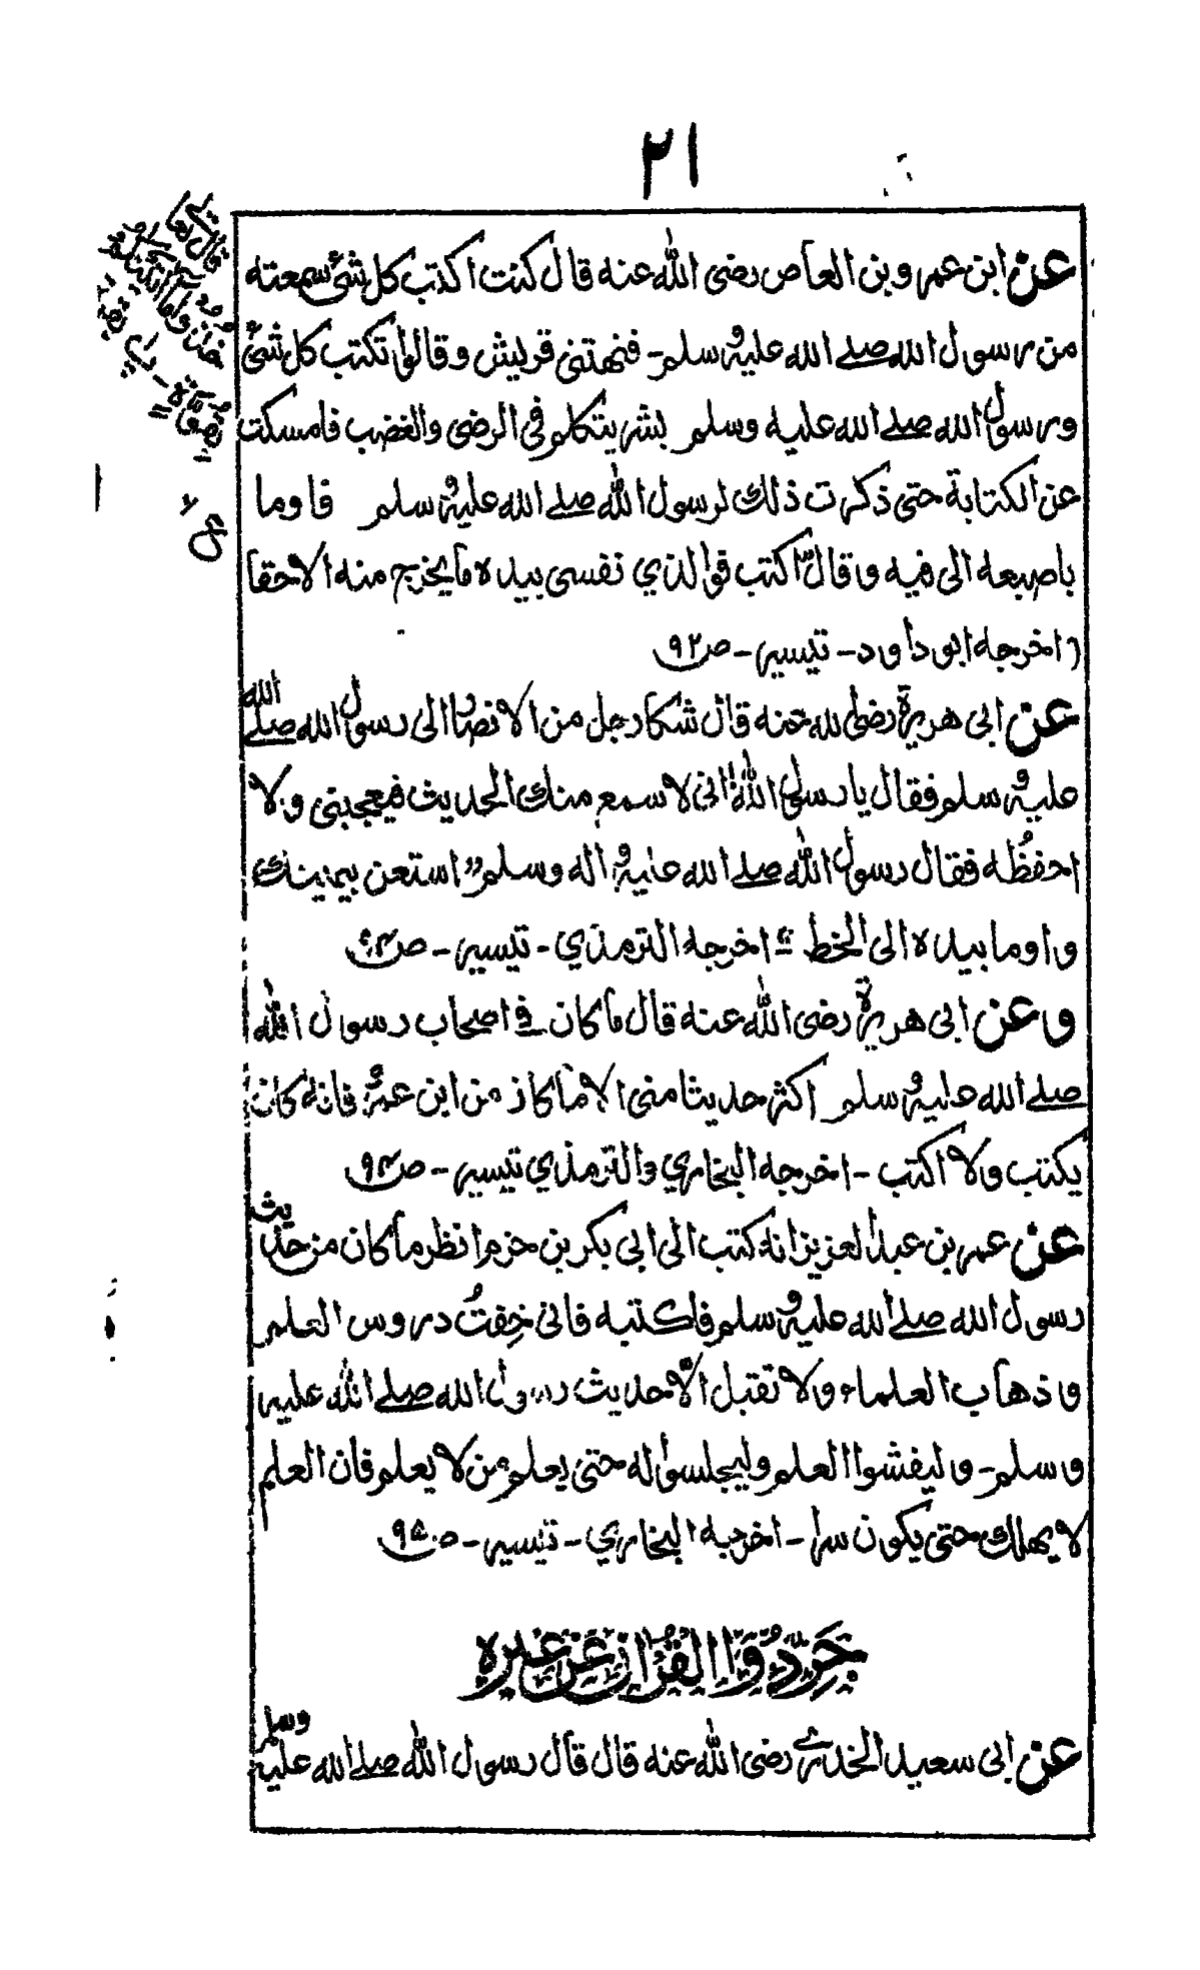 ٢١
عن ابن عمر و بن العاص رضی الله عنه قال كنت اكتب كل شئ سمعته
من رسول الله صلے الله علیه و سلم۔ فنهتنی قریش و قالوا تكتب كل شئ
و رسول الله صلے الله علیه وسلم بشر یتكلم فی الرضی والغضب فامسكت
عن الكتابة حتی ذكرت ذلك لرسول الله صلے الله علیه و سلم فا وما
باصبعه الی فیه و قال اكتب فو الذی نفسی بیده ما یخرج منه الا حقا
(اخرجه ابو داود۔ تیسیر۔ ص ۹۲
عن ابی هریرة رضی الله عنه قال شكا رجل من الانصار الی رسول الله صلے الله
علیه و سلم فقال یا رسول الله انی لا سمع منك الحدیث فیعجبنی و لا
احفظه فقال رسول الله صلے الله علیه و اله وسلم " استعن بیمینك
و اوما بیده الی الخط " اخرجه الترمذی۔ تیسیر۔ ص
و عن ابی هریرة رضی الله عنه قال ما كان فی اصحاب رسول الله
صلے الله علیه و سلم اكثر حدیثا منی الا ما كان من ابن عمر فانه كان
یكتب و لا اكتب۔ اخرجه البخاری والترمذی تیسیر۔ ص
عن عمر بن عبد العزیز انه كتب الی ابی بكر بن حزم انظر ما كان من حدیث
رسول الله صلے الله علیه و سلم فاكتبه فانی خِفتُ دروس العلم
و ذهاب العلماء ولا تقبل الّا حدیث رسول الله صلے الله علیه
و سلم۔ و لیفشوا العلم ولیجلسوا له حتی یعلم من لا یعلم فان العلم
لا یهلك حتی یكون سرا۔ اخرجه البخاری۔ تیسیر۔ ص
جَرِّدُوا القُرْانَ عَنْ غَیرِه
عن ابی سعید الخدری رضی الله عنه قال قال رسول الله صلے الله علیه وسلم
قال تعا